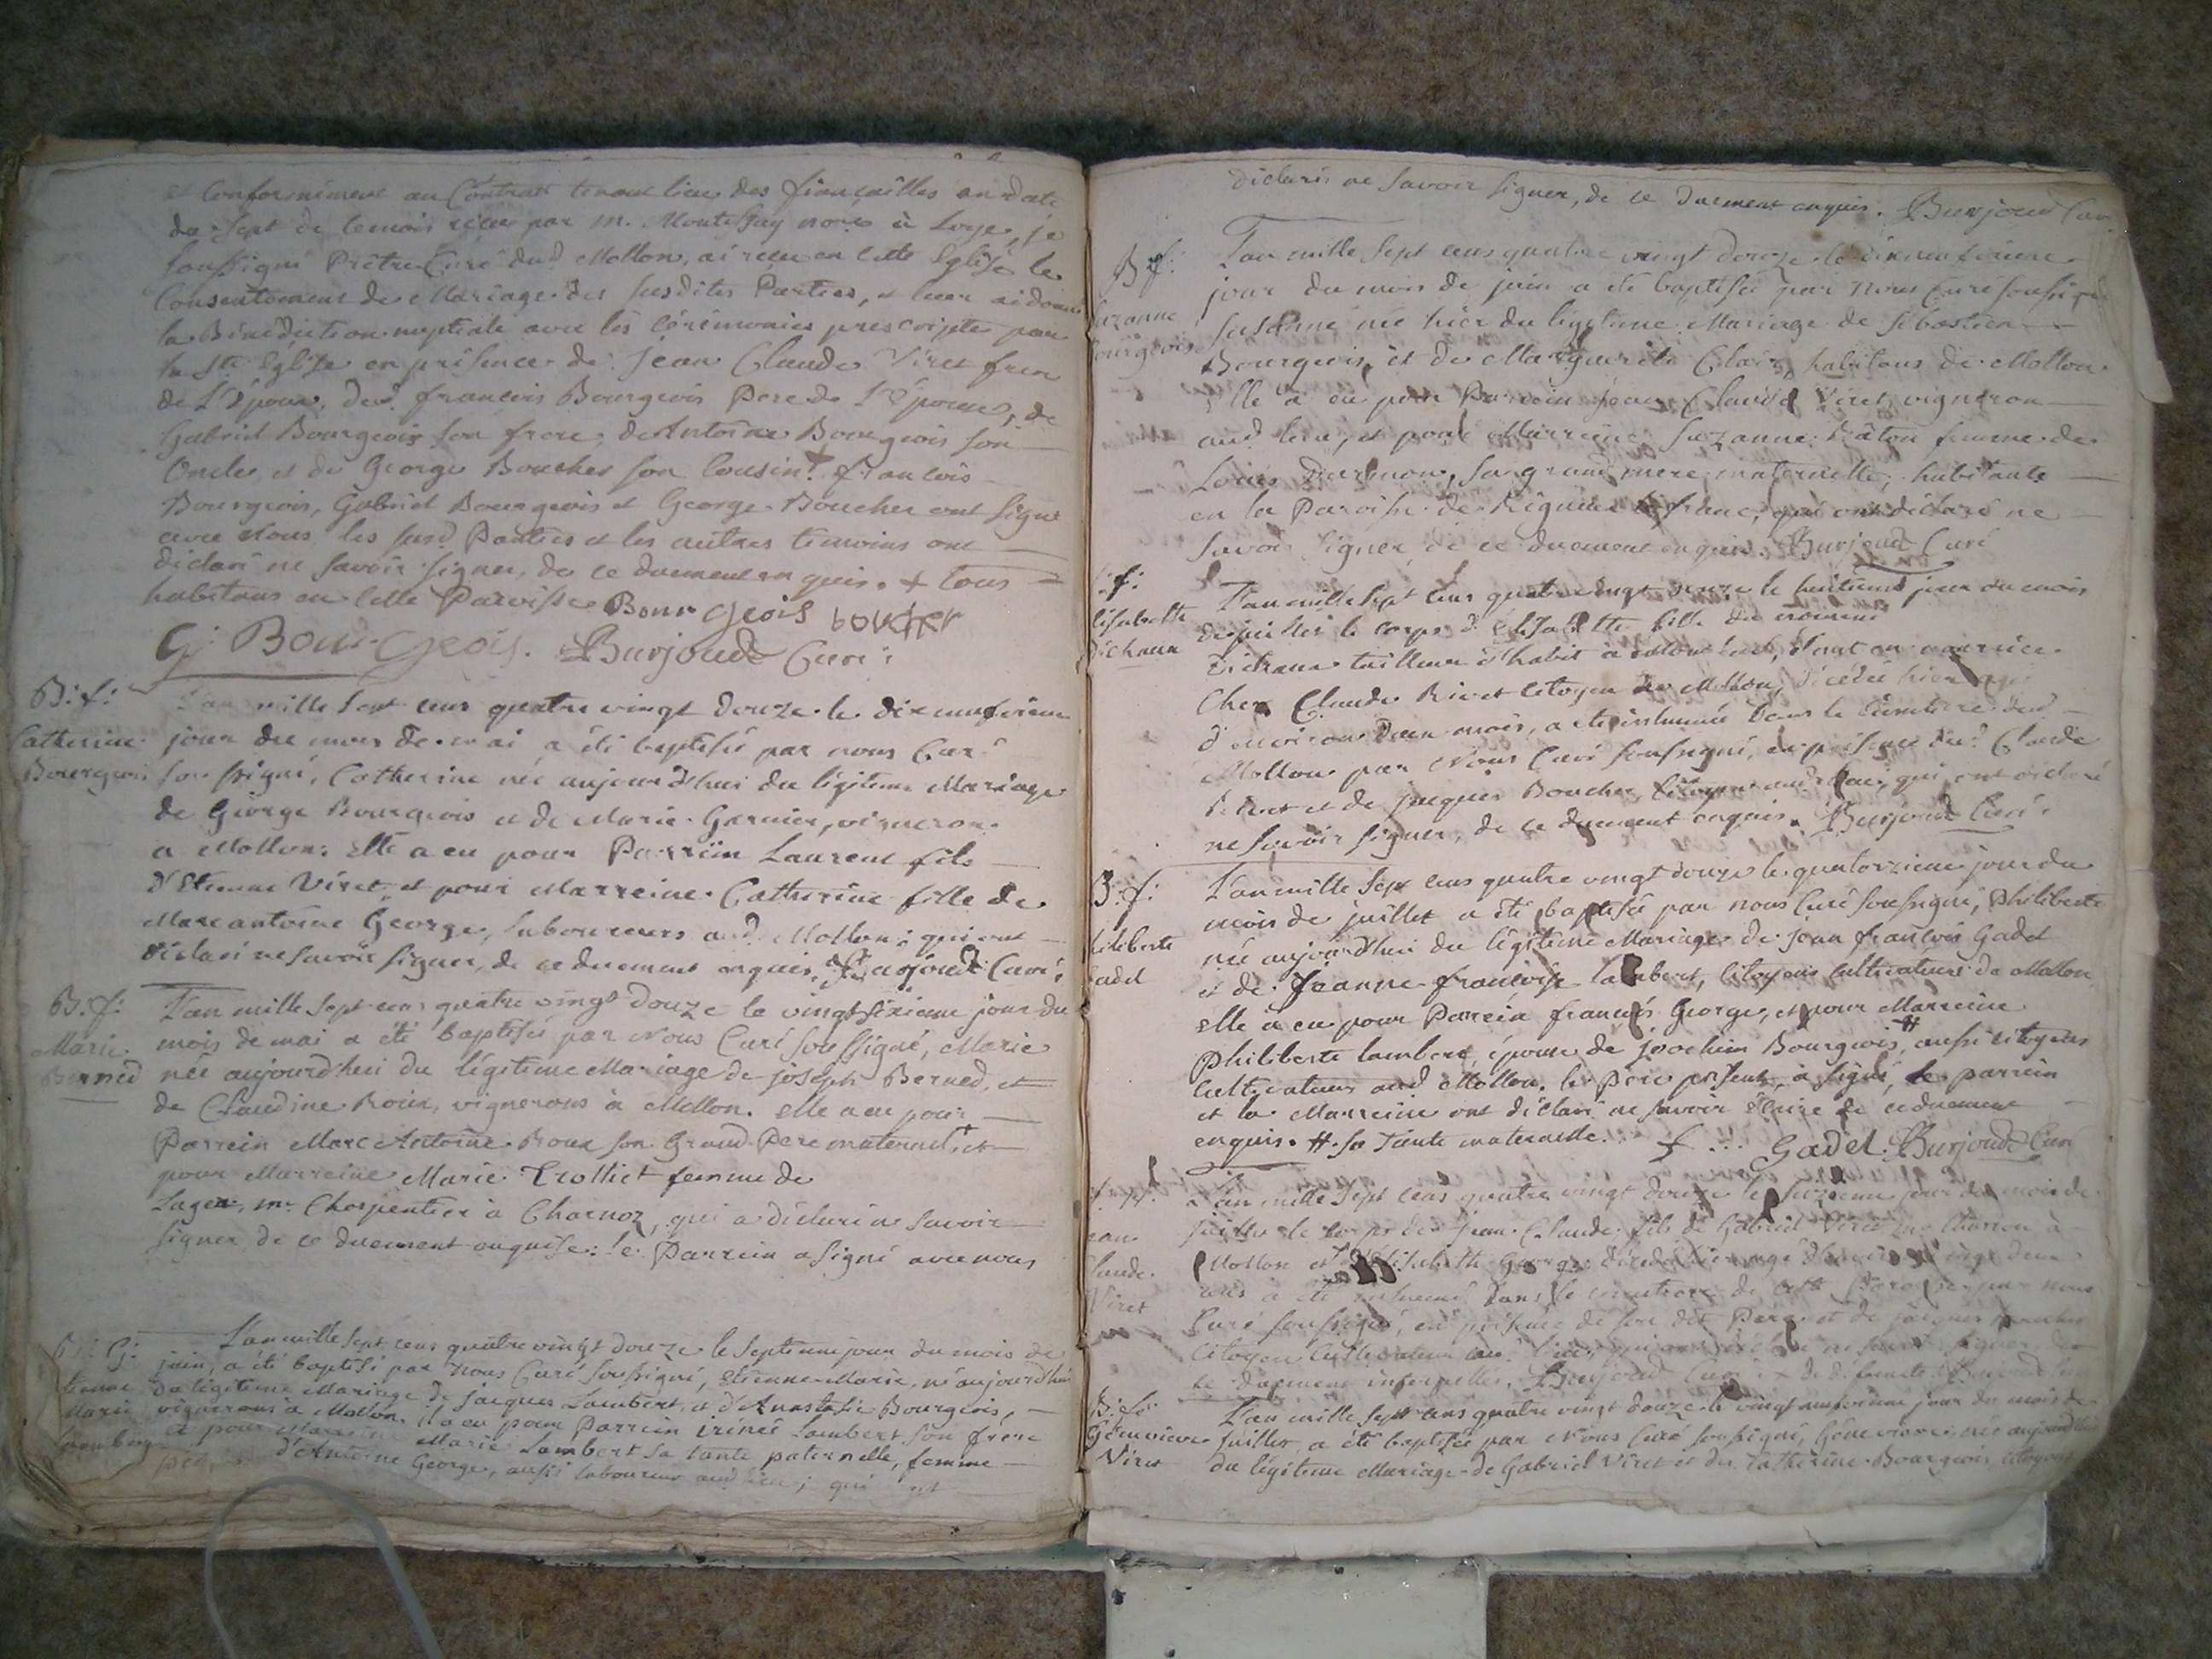 et Conformément au Contrat tenant lieu des fiançailles en date
du sept de ce mois recu par m. Montessuy nore à Loye, je
soussigné Prêtre Curé dud Mollon, ai recu en cette Eglise le
Consentement de Mariage des susdites Parties, et leur ai donné
la Bénédiction nuptiale avec les cérémonies prescripte par
la Ste Eglise en présence de Jean Claude Viret frere
de L'Epoux, de françois Bourgeois Pere de L'épouse, de
Gabriel Bourgeois son frere, de Antoine Bourgeois son
Oncle, et de George Boucher son Cousin. + françois
Bourgeois, Gabriel Bourgeois et George Boucher ont signé
avec Nous les susd Parties et les autres temoins ont
déclaré ne savoir signer, de ce duement enquis. + tous
habitans en cette Paroisse Bourgeois boucher
G: Bourgeois. Burjoud Curé
B: f: L'an mille sept cens quatre vingt douze le dix neuvieme
Catherine jour du mois de mai a été baptisée par nous Curé
Bourgeois soussigné, Catherine née aujourd'hui du légitime Mariage
de George Bourgeois et de Marie Garnier, vigneron
a Mollon: elle a eu pour Parrein Laurent fils
d'Etienne Viret, et pour Marreine Catherine fille de
Marc antoine George, laboureurs aud. Mollon; qui ont
déclaré ne savoir signer, de ce duement enquis. Burjoud Curé
B. f: L'an mille sept cens quatre vingt douze le vingt sixieme jour du
Marie mois de mai a été baptisée par Nous Curé soussigné, Marie
Berned née aujourd'hui du légitime Mariage de joseph Berned, et
de Claudine Roux, vignerons à Mollon. elle a eu pour
Parrein Marc Antoine Roux son Grand Pere maternel, + et
pour Marreine Marie Trolliet femme de
Lager, me Charpentier à Charnoz, qui a déclaré ne savoir
signer de ce duement enquise: le Parrein a signé avec nous
B: G: L'an mille sept cens quatre vingt douze le septieme jour du mois de
juin, a été baptisé par Nous Curé soussigné, Etienne Marie, né aujourd'hui
Marie du légitime Mariage de jacques Lambert, et d'Anastasie Bourgeois,
vignerons à Mollon. il a eu pour Parrein irénée Lambert son frere
et pour Marreine Marie Lambert sa tante paternelle, femme
d'Antoine George, aussi laboureur aud lieu; qui ont
déclaré ne savoir signer, de ce duement enquis. Burjoud Curé
B f: L'an mille sept cens quatre vingt douze le dixneuvieme
jour du mois de juin a été baptisée par Nous Curé soussigné
Suzanne née hier du légitime Mariage de sébastien
Bourgeois, et de Marguerite habitans de Mollon.
Elle a eu pour Parrein jean Claude Viret vigneron
aud lieu, et pour Marreine Suzanne femme de
Louis sa grand mere maternelle, habitante
en la Paroisse de Rigneux le franc, qui ont déclaré ne
savoir signer de ce duement enquis. Burjoud Curé
f: L'an mille sept cens quatre vingt douze le huitieme jour du mois
de juillet le corps d'Elisabette fille de
tailleur d'habit à étant en nourrice
Chez Claude Rivet citoyen de Mollon, décédée hier agée
d'environ mois, a été inhumée dans le cimetiere dud
Mollon par Nous Curé soussigné, en présence dud Claude
Rivet et de jacques Boucher, qui ont déclaré
ne savoir signer, de ce duement enquis. Burjoud Curé
B: f: L'an mille sept cens quatre vingt douze le quatorzieme jour du
mois de juillet a été baptisée par nous Curé soussigné, Philiberte
née aujourd'hui du légitime Mariage de jean françois Gadel
et de jeanne françoise lambert, Citoyens cultivateurs de Mollon
elle a eu pour Parrein françois George, et pour Marreine
Philiberte lambert, épouse de joachim Bourgeois, # aussi citoyens
cultivateurs aud Mollon. le Pere présent, a signé, le parrein
et la Marreine ont déclaré ne savoir écrire de ce duement
enquis. # sa Tante maternelle. f Gadel Burjoud Curé
L'an mille sept cens quatre vingt douze le jour du mois de
juillet le corps de jean Claude fils de Gabriel Viret
Mollon et d'Elisabette George décédé hier agé d'environ vingt deux
ans a été inhumé dans le cimetiere de cette Paroisse par nous
Viret Curé soussigné, en présence de son dit Pere et de jacques
Citoyen cultivateur aud lieu, qui ont déclaré ne savoir signer de
ce duement interpellés. Burjoud Curé
B: f: L'an mille sept cens quatre vingt douze le vingt neuvieme jour du mois de
Génevieve juillet a été baptisée par Nous Curé soussigné, Génevieve née aujourd'hui
Viret du légitime Mariage de Gabriel Viret et de Catherine Bourgeois citoyens